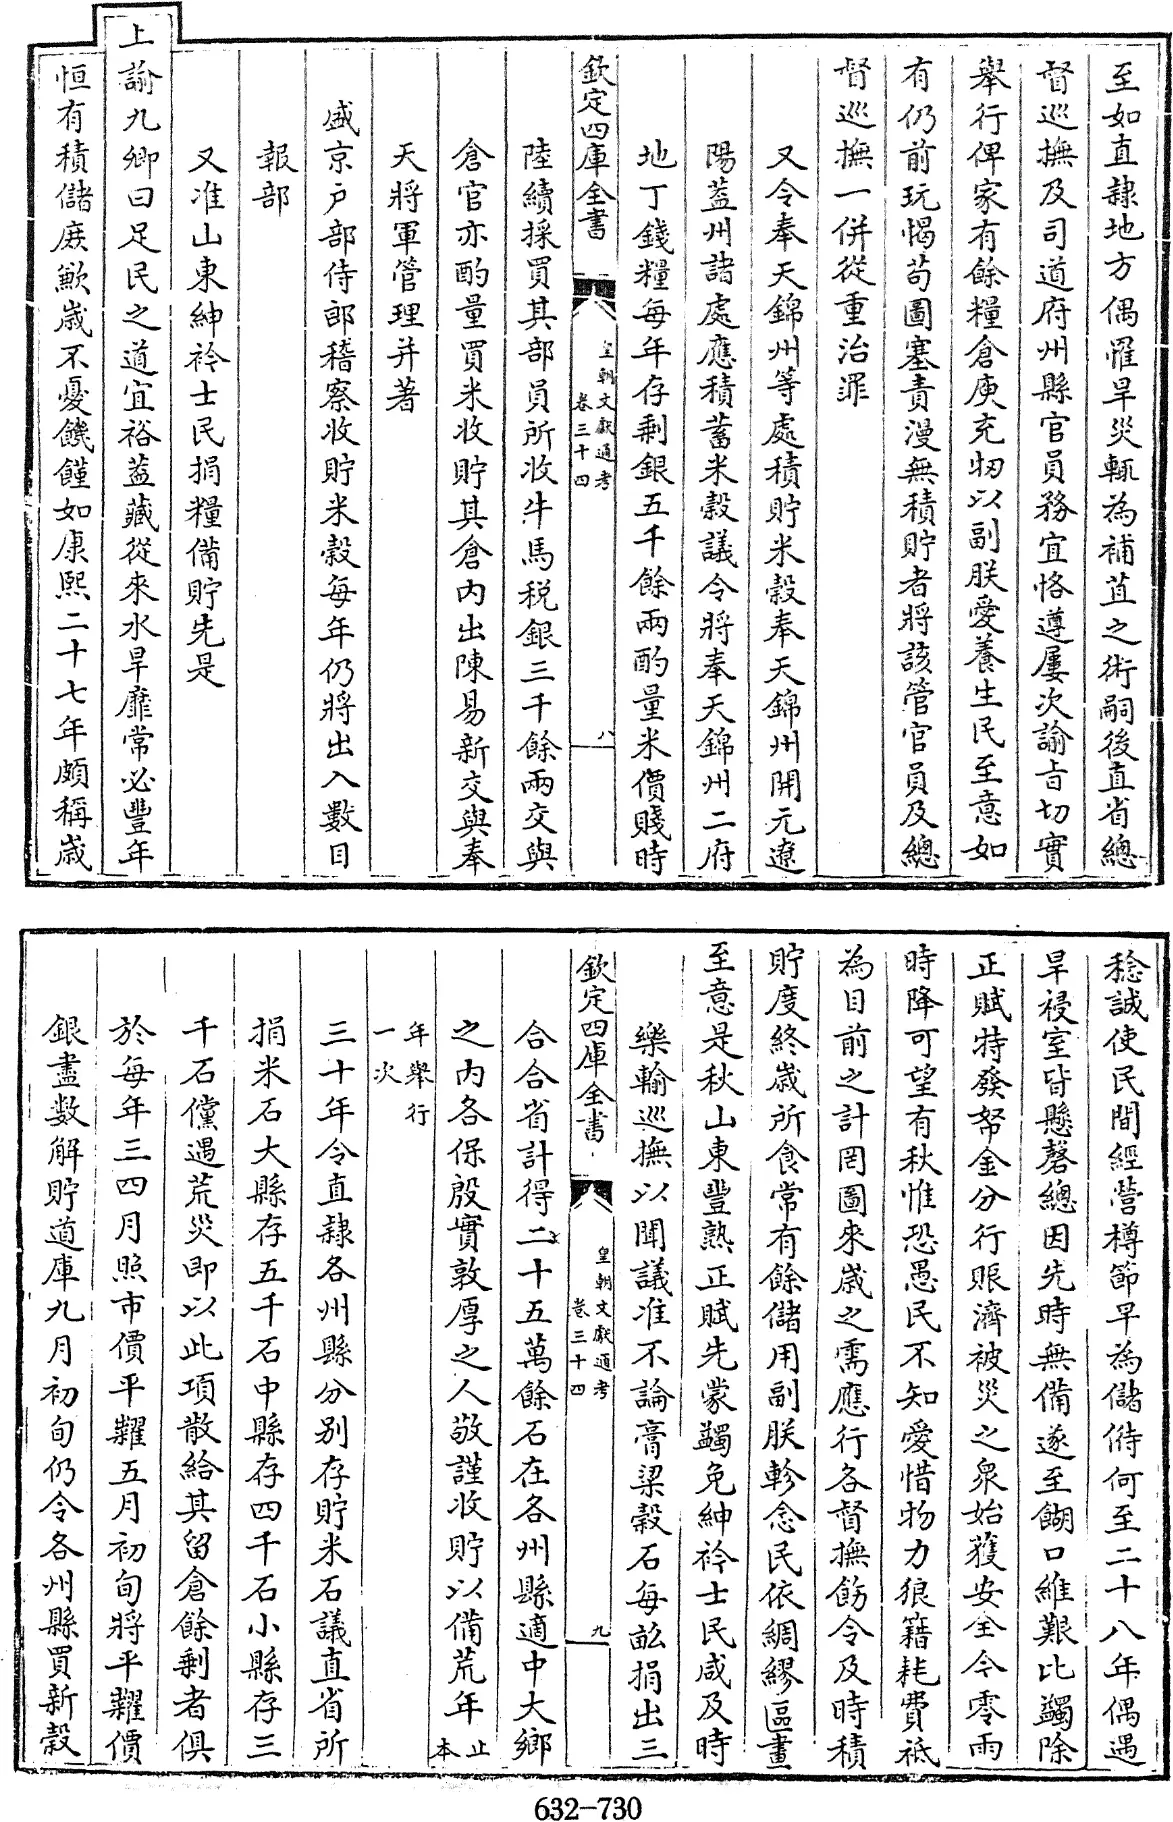 至如直隷地方偶罹旱災輒為補苴之術嗣後直省總
督巡撫及司道府州縣官員務宜恪遵屢次諭旨切實
舉行俾家有餘糧倉庾充牣以副朕愛養生民至意如
有仍前玩愒苟圖塞責漫無積貯者將該管官員及總
督巡撫一併從重治罪
又令奉天錦州等處積貯米穀奉天錦州開元遼
陽蓋州諸處應積蓄米穀議令將奉天錦州二府
地丁錢糧每年存剩銀五千餘兩酌量米價賤時
欽定四庫全書
皇朝文獻通考
卷三十四
八
陸續採買其部員所收牛馬稅銀三千餘兩交與
倉官亦酌量買米收貯其倉內出陳易新交與奉
天將軍管理并著
盛京戶部侍郎稽察收貯米穀每年仍將出入數目
報部
又准山東紳衿士民捐糧備貯先是
上諭九卿曰足民之道宜裕葢藏從來水旱靡常必豐年
恒有積儲庶歉歲不憂饑饉如康熙二十七年頗稱歲
稔誠使民間經營樽節早為儲偫何至二十八年偶遇
旱祲室皆懸磬總因先時無備遂至餬口維艱比蠲除
正賦特發帑金分行賑濟被災之衆始獲安全今零雨
時降可望有秋惟恐愚民不知愛惜物力狼籍耗費祗
為目前之計罔圖來歲之需應行各督撫飭令及時積
貯度終歲所食常有餘儲用副朕軫念民依綢繆區畫
至意是秋山東豐熟正賦先蒙蠲免紳衿士民咸及時
樂輸巡撫以聞議准不論膏粱穀石每畝捐出三
欽定四庫全書
皇朝文獻通考
卷三十四
九
合合省計得二十五萬餘石在各州縣適中大鄉
之內各保殷實敦厚之人敬謹收貯以備荒年止本
年舉行
一次
三十年令直隷各州縣分別存貯米石議直省所
捐米石大縣存五千石中縣存四千石小縣存三
千石儻遇荒災即以此項散給其留倉餘剩者俱
於每年三四月照市價平糶五月初旬將平糶價
銀盡數解貯道庫九月初旬仍令各州縣買新穀
632-730